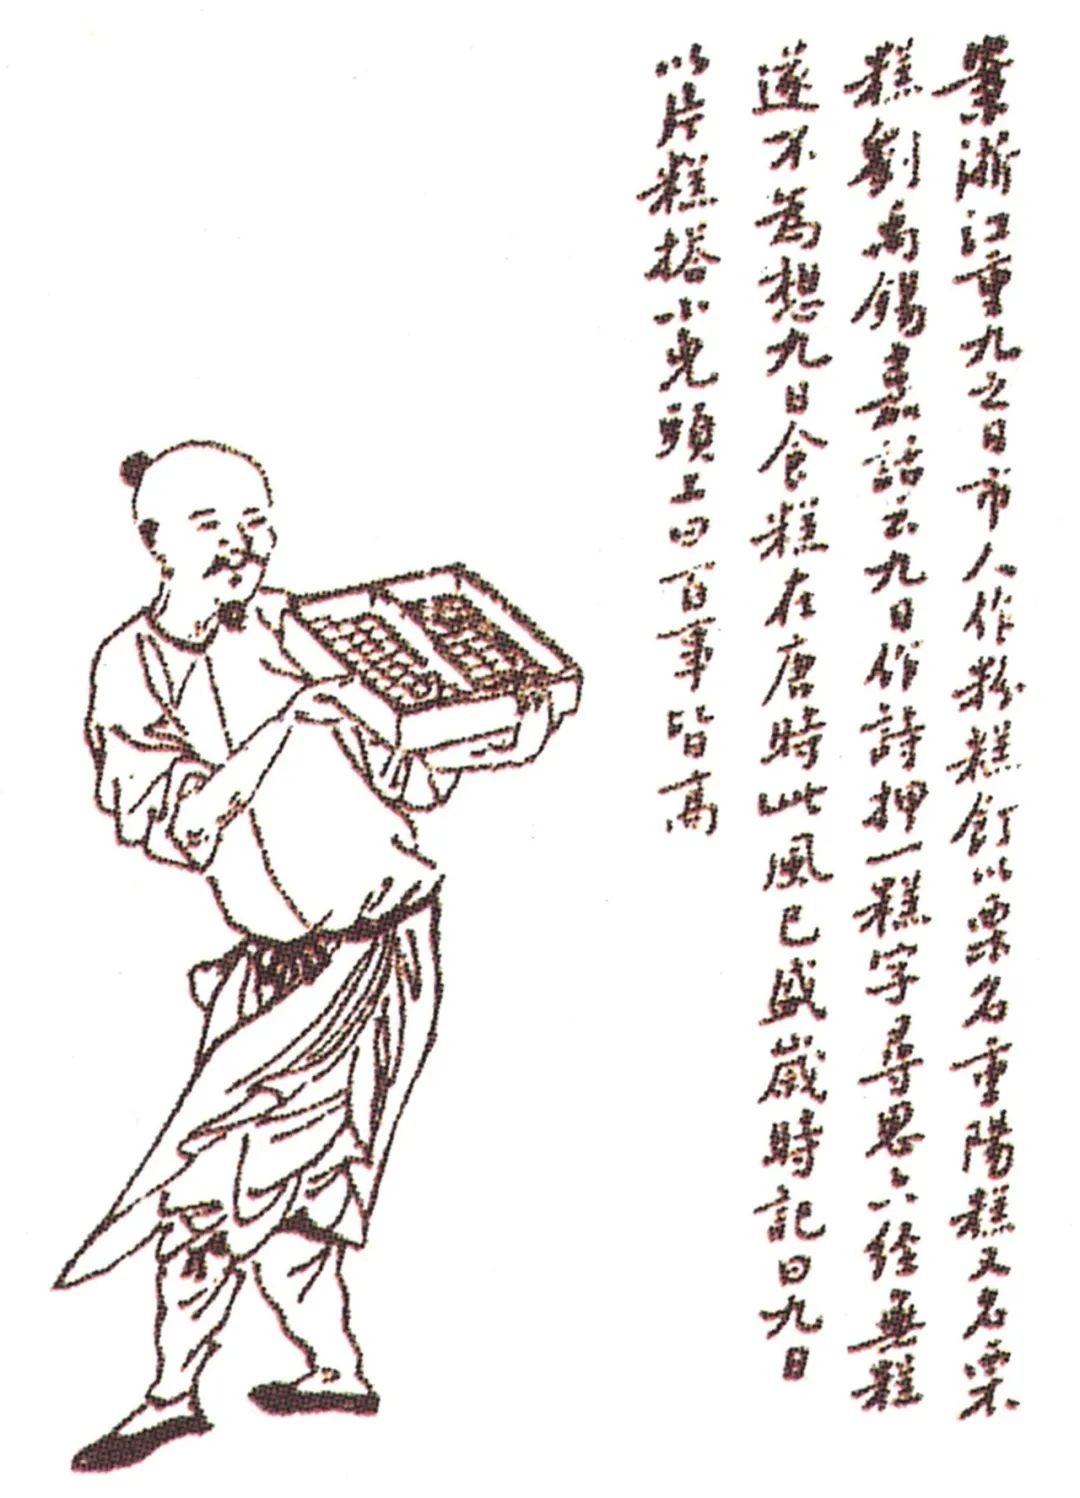 業浙江重九之日市人作粉糕飣以栗名重陽糕又名栗
糕劉禹錫嘉話云九日作詩押一糕字尋思六經無糕
遂不為想九日食糕在唐時此風已盛歲時記曰九日
以片糕搭小兒頭上曰百事皆高